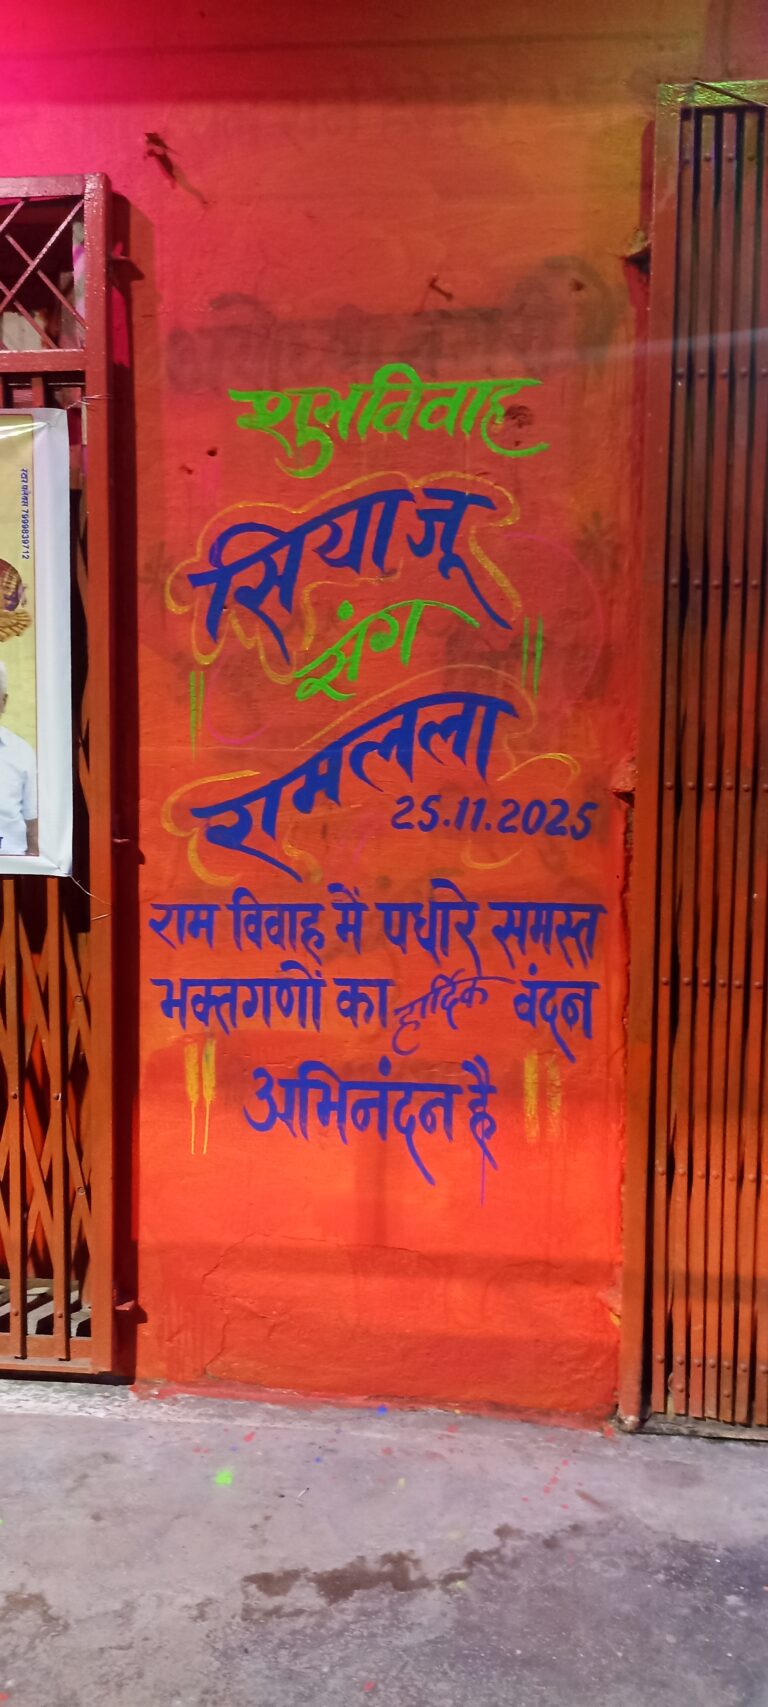 शुभविवाह
सियाजू
संग
रामलला
25.11.2025
राम विवाह में पधारे समस्त
भक्तगणों का हार्दिक वंदन
अभिनंदन है
स्टार फ्लेक्स 7999839712